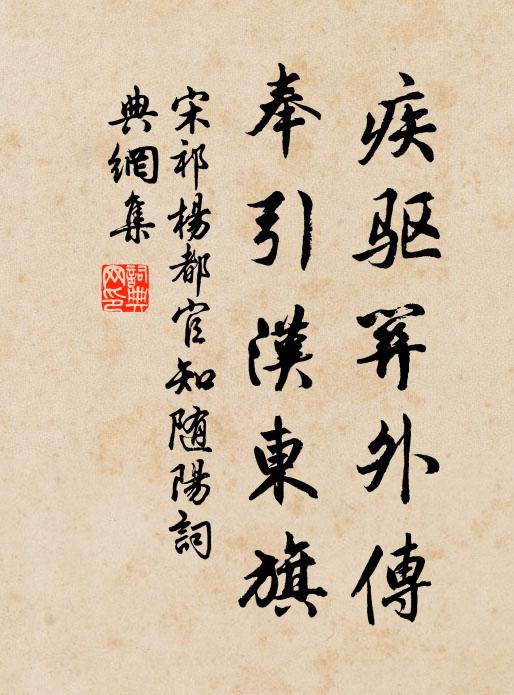 疾驱關外傳
奉引漢東旗
宋祁楊都官知随陽詞
典網集
詞典
网印